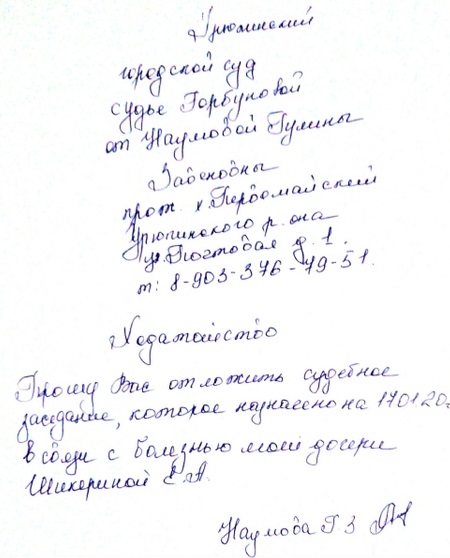 Урюпинский
городской суд
судье Горбуновой
от Наумовой Гулины
прож. х Первомайский
Урюпинского р. она
ул Почтовая д. 1.
т: 8-903-376-79-51.
Ходатайство
Прошу Вас отложить судебное
заседание, которое назначено на 170120
в связи с болезнью моей дочери
Шикериной Е.А.
Наумова Г З